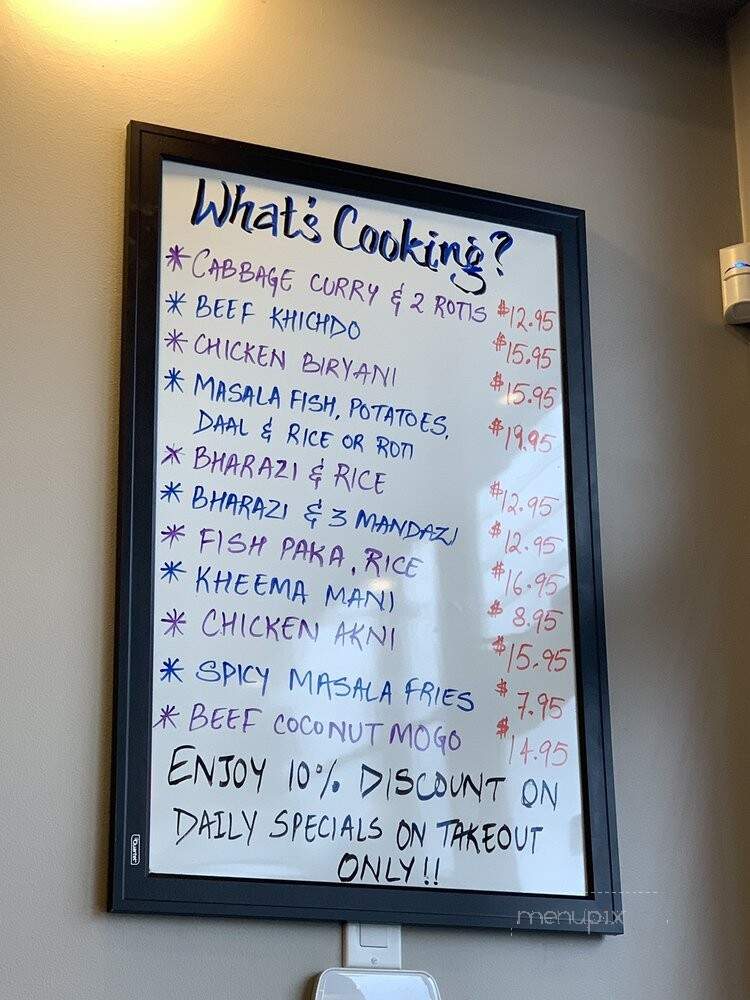 What's Cooking?
* CABBAGE CURRY & 2 ROTIS $12.95
* BEEF KHICHDO $15.95
* CHICKEN BIRYANI $15.95
* MASALA FISH, POTATOES, $19.95
DAAL & RICE OR ROTI
* BHARAZI & RICE $12.95
* BHARAZI & 3 MANDAZI $12.95
* FISH PAKA, RICE $16.95
* KHEEMA MANI $8.95
* CHICKEN AKNI $15.95
* SPICY MASALA FRIES $7.95
* BEEF COCONUT MOGO $14.95
ENJOY 10% DISCOUNT ON
DAILY SPECIALS ON TAKEOUT
ONLY!!
Quartet
menupix